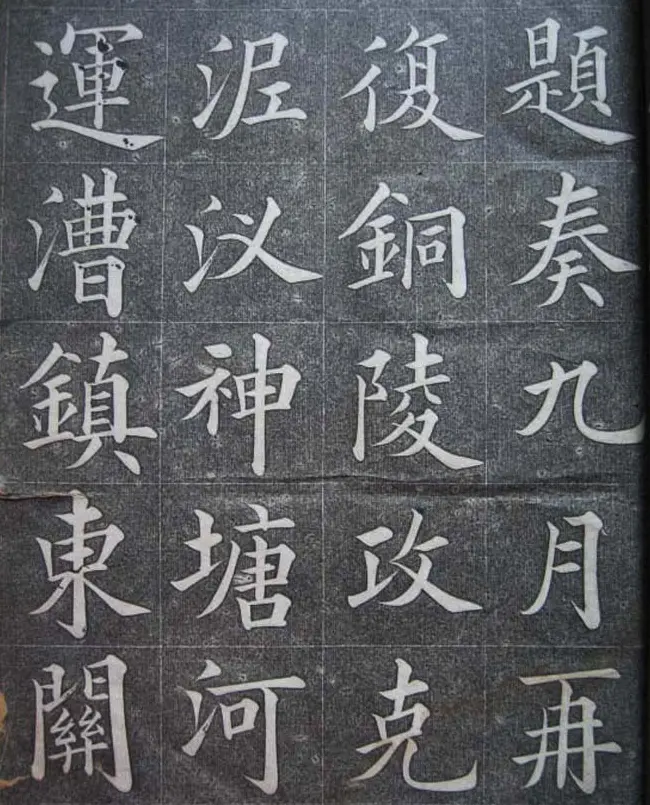 題奏九月再
復銅陵攻克
泥汊神塘河
運漕鎮東關